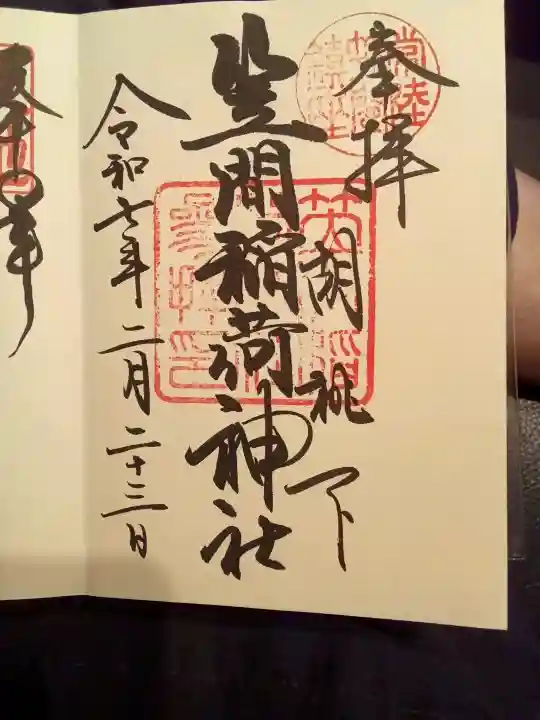 奉拝
胡桃下
笠間稲荷神社
令和七年二月二十三日
奉拝